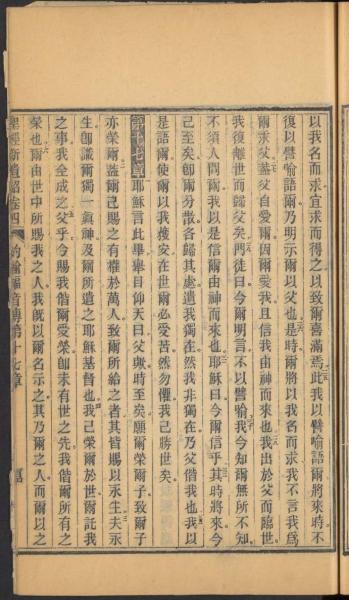 以我名而求宜求而得之以致爾喜滿焉此我以譬喻語爾將來時不
復以譬喻語爾乃明示爾以父也是時爾將以我名而求我不言我爲
爾求父蓋父自愛爾因爾愛我且信我由神而來也我出於父而臨世
我復離世而歸父矣門徒曰今爾明言不以譬喻我今知爾無所不知
不須人問爾我以是信爾由神而來也耶穌曰今爾信乎其時將來今
已至矣卽爾分散各歸其處遺我獨在然我非獨在乃父偕我也我以
是語爾使爾以我獲安在世爾必受苦然勿懼我已勝世矣
第十七章耶穌言此畢舉目仰天曰父與時至矣願爾榮爾子致爾子
亦榮爾蓋爾已賜之有權於萬人致爾所給之者其皆賜以永生夫永
生卽識爾獨一眞神及爾所遣之耶穌基督也我已榮爾於世爾託我
之事我全成之父乎今賜我偕爾愛榮卽未有世之先我偕爾所有之
榮也爾由世中所賜我之人我旣以爾名示之其乃爾之人而爾以之
聖經新遺詔卷四 約翰福音傳第十七章